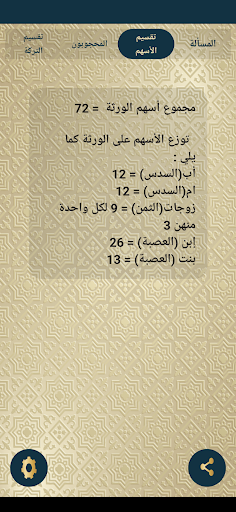 المسألة
تقسيم
الأسهم
المحجوبون
تقسيم
التركة
مجموع أسهم الورثة = 72
توزع الأسهم على الورثة كما
يلي :
أب(السدس) = 12
ام(السدس) = 12
زوجات(الثمن) = 9 لكل واحدة
منهن 3
إبن (العصبة) = 26
بنت (العصبة) = 13